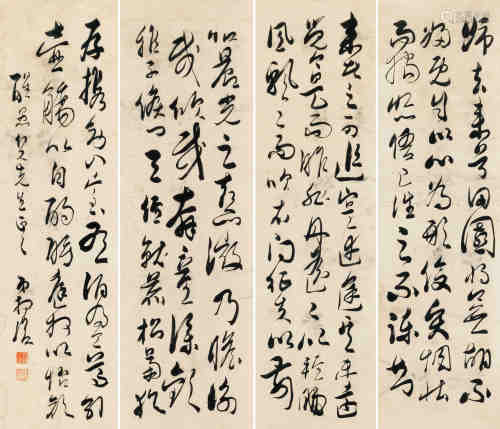 歸去來兮田園將蕪胡不
歸既自以心為形役奚惆悵
而獨悲悟已往之不諫知
來者之可追寔迷途其未遠
覺今是而昨非舟遙遙以輕颺
風飄飄而吹衣問征夫以前
恨晨光之熹微乃瞻衡
載欣載奔童僕歡
稚子候門三徑就荒松菊猶
存攜幼入室有酒盈尊引
壺觴以自酌眄庭柯以怡顏
先生正之